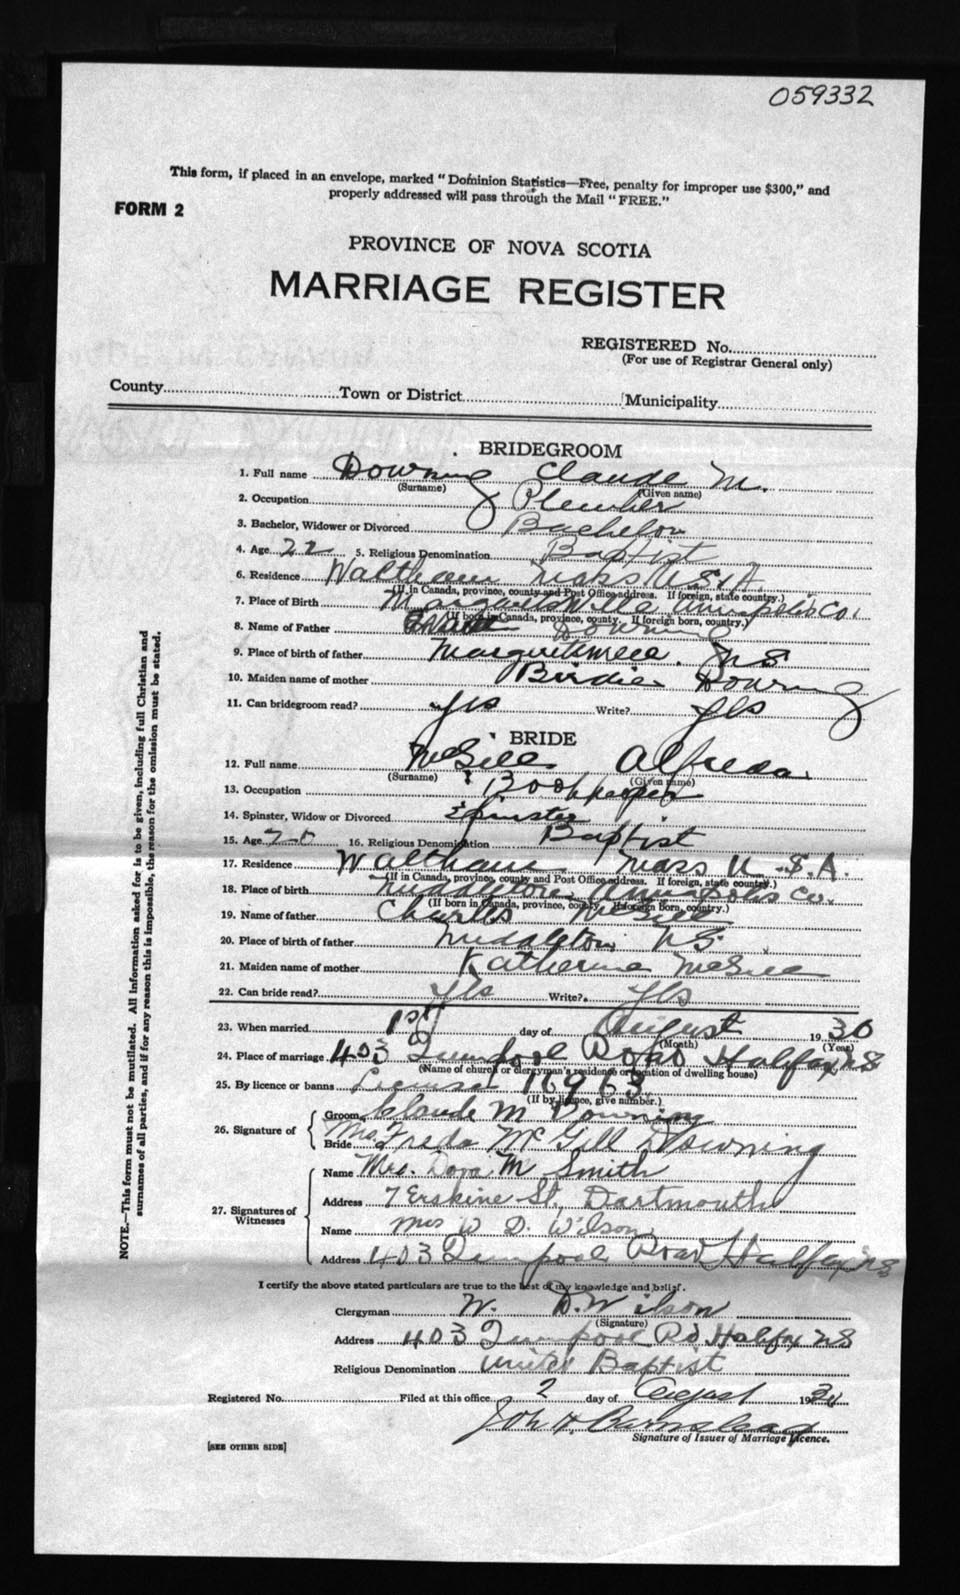 059332
This form, if placed in an envelope, marked "Dominion Statistics—Free, penalty for improper use $300," and
properly addressed will pass through the Mail "FREE."
FORM 2
PROVINCE OF NOVA SCOTIA
MARRIAGE REGISTER
REGISTERED No.
(For use of Registrar General only)
County Town or District Municipality
BRIDEGROOM
1. Full name Downing Claude M.
(Surname) (Given name)
2. Occupation Plumber
3. Bachelor, Widower or Divorced Bachelor
4. Age 22 5. Religious Denomination Baptist
6. Residence Waltham Mass U.S.A.
(If in Canada, province, county and Post Office address. If foreign, state country.)
7. Place of Birth Margaretsville Annapolis Co.
(If born in Canada, province, county. If foreign born, country.)
8. Name of Father Downing
9. Place of birth of father NS
10. Maiden name of mother Birdie Downing
11. Can bridegroom read? yes Write? yes
BRIDE
12. Full name McGill Alfreda
(Surname) (Given name)
13. Occupation Bookkeeper
14. Spinster, Widow or Divorced Spinster
15. Age 16. Religious Denomination Baptist
17. Residence Waltham Mass U.S.A.
(If in Canada, province, county and Post Office address. If foreign, state country.)
18. Place of birth Middleton Annapolis Co.
(If born in Canada, province, county. If foreign born, country.)
19. Name of father Charles McGill
20. Place of birth of father Middleton NS
21. Maiden name of mother Katherine McGill
22. Can bride read? yes Write? yes
23. When married 1st day of August 1930
(Month) (Year)
24. Place of marriage 403 Quinpool Road Halifax NS
(Name of church or clergyman's residence or location of dwelling house)
25. By licence or banns License 16963
(If by licence, give number.)
26. Signature of
Groom Claude M Downing
Bride Mrs. Freda McGill Downing
27. Signatures of Witnesses
Name Mrs. Dora M Smith
Address 7 Erskine St., Dartmouth
Name Mrs W D. Wilson
Address 403 Quinpool Road Halifax NS
I certify the above stated particulars are true to the best of my knowledge and belief.
Clergyman W. D. Wilson
(Signature)
Address 403 Quinpool Rd Halifax NS
Religious Denomination United Baptist
Registered No. Filed at this office 2 day of August 1930
Barnstead
Signature of Issuer of Marriage Licence.
[SEE OTHER SIDE]
NOTE.—This form must not be mutilated. All information asked for is to be given, including full Christian and
surnames of all parties, and if for any reason this is impossible, the reason for the omission must be stated.